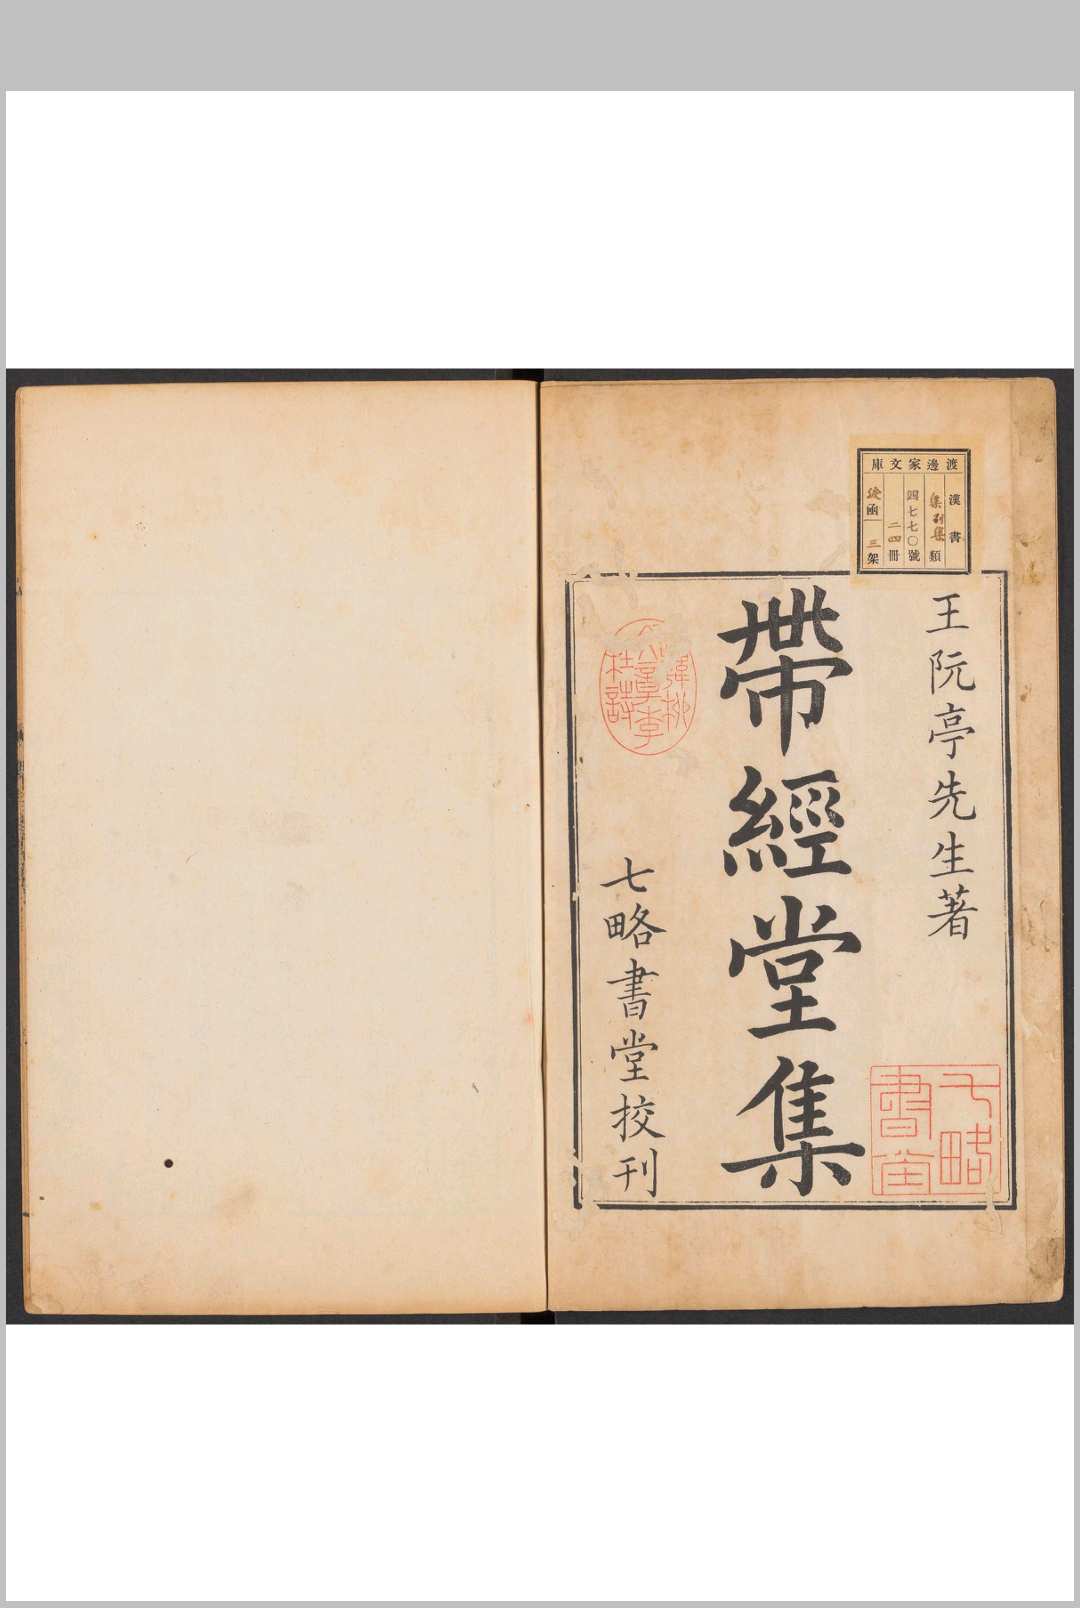 渡邊家文庫
漢書
集別集類
四七七〇號
二四冊
函三架
王阮亭先生著
帶經堂集
七略書堂校刊
七略書堂
韓柳
杜詩